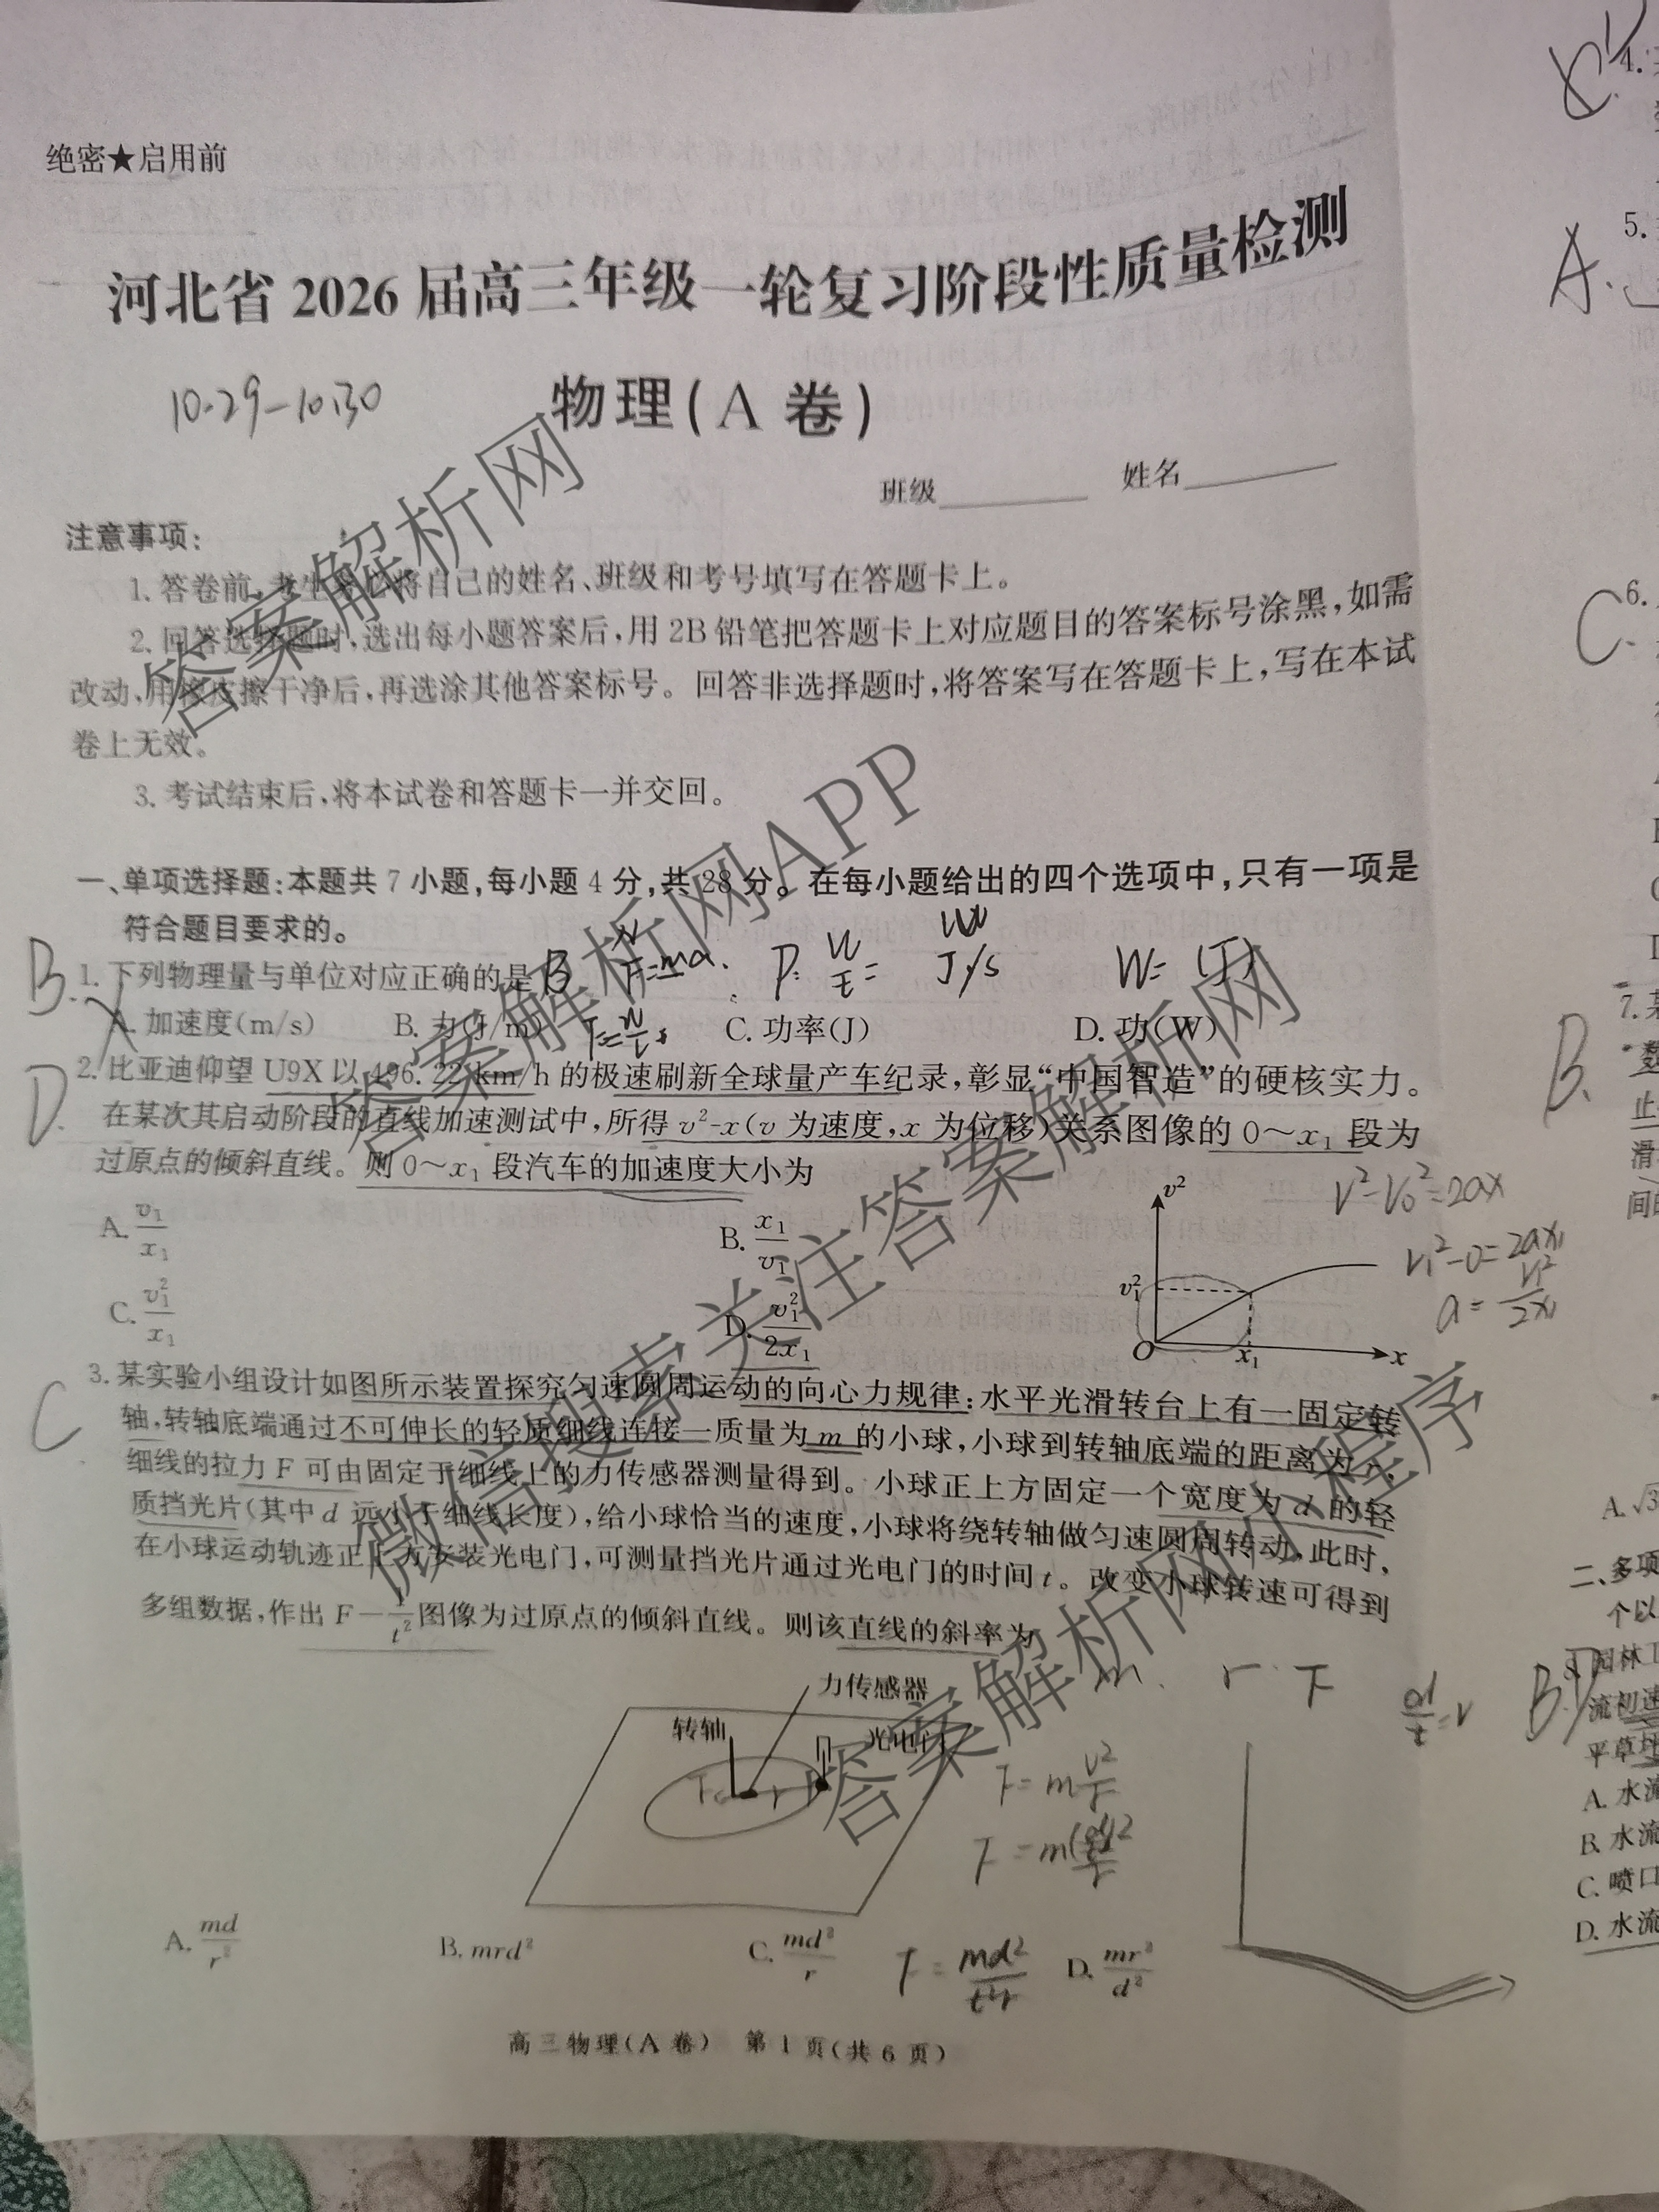 绝密★启用前
河北省 2026 届高三年级一轮复习阶段性质量检测
10.29-10.30
物理(A 卷)
班级 姓名
注意事项:
1. 答卷前,考生务必将自己的姓名、班级和考号填写在答题卡上。
2. 回答选择题时,选出每小题答案后,用 2B 铅笔把答题卡上对应题目的答案标号涂黑,如需
改动,用橡皮擦干净后,再选涂其他答案标号。回答非选择题时,将答案写在答题卡上,写在本试
卷上无效。
3. 考试结束后,将本试卷和答题卡一并交回。
一、单项选择题:本题共 7 小题,每小题 4 分,共 28 分。在每小题给出的四个选项中,只有一项是
符合题目要求的。
B.
1. 下列物理量与单位对应正确的是 B F=ma. P= W/t = J/s W=(J)
A. 加速度(m/s) B. 力(J/m) C. 功率(J) D. 功(W)
D.
2. 比亚迪仰望 U9X 以 496.22 km/h 的极速刷新全球量产车纪录,彰显“中国智造”的硬核实力。
在某次其启动阶段的直线加速测试中,所得 v²-x(v 为速度,x 为位移)关系图像的 0～x₁ 段为
过原点的倾斜直线。则 0～x₁ 段汽车的加速度大小为
A. v₁/x₁ B. x₁/v₁
C. v₁²/x₁ D. v₁²/2x₁
v²
v₁²
O x₁ x
v²-v₀²=2ax
v₁²-0=2ax₁
a=v₁²/2x₁
C
3. 某实验小组设计如图所示装置探究匀速圆周运动的向心力规律:水平光滑转台上有一固定转
轴,转轴底端通过不可伸长的轻质细线连接一质量为 m 的小球,小球到转轴底端的距离为 r,
细线的拉力 F 可由固定于细线上的力传感器测量得到。小球正上方固定一个宽度为 d 的轻
质挡光片(其中 d 远小于细线长度),给小球恰当的速度,小球将绕转轴做匀速圆周转动,此时,
在小球运动轨迹正上方安装光电门,可测量挡光片通过光电门的时间 t。改变小球转速可得到
多组数据,作出 F－1/t² 图像为过原点的倾斜直线。则该直线的斜率为
m. r. F d/t=v
力传感器
转轴 光电门
F=m v²/r
F=m(d/t)²/r
A. md/r² B. mrd² C. md²/r F=md²/t²r D. mr²/d²
高三物理(A 卷) 第 1 页(共 6 页)
4.
5.
A.
6.
C.
7.
B.
止
滑
间
A. √3
二、多项
个以
B.D
园林
流初速
平草坪
A. 水流
B. 水流
C. 喷口
D. 水流
答案解析网
答案解析网APP
微信搜索关注答案解析网
答案解析网小程序